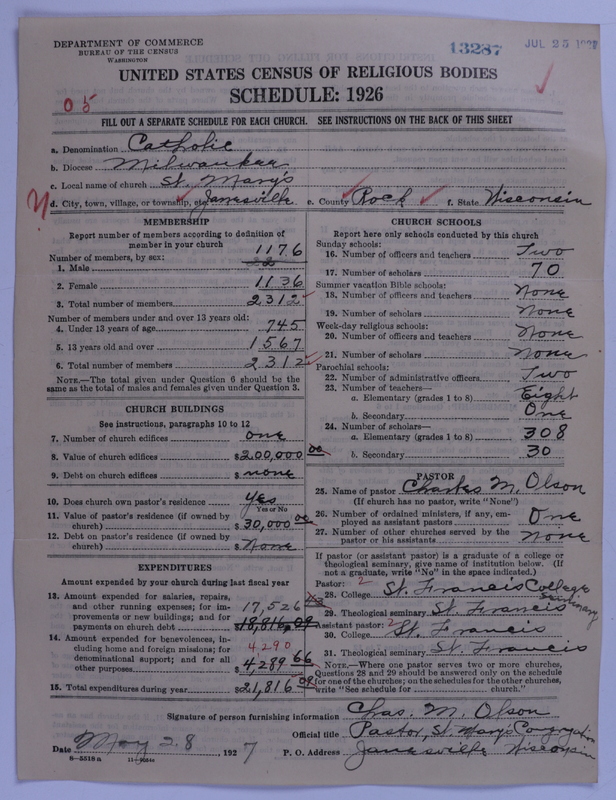 DEPARTMENT OF COMMERCE
BUREAU OF THE CENSUS
WASHINGTON
13287
JUL 25 1927
UNITED STATES CENSUS OF RELIGIOUS BODIES
SCHEDULE: 1926
05
FILL OUT A SEPARATE SCHEDULE FOR EACH CHURCH. SEE INSTRUCTIONS ON THE BACK OF THIS SHEET
a. Denomination Catholic
b. Diocese Milwaukee
c. Local name of church St. Mary's
d. City, town, village, or township, etc. Janesville. e. County Rock f. State Wisconsin
MEMBERSHIP
Report number of members according to definition of member in your church
Number of members, by sex:
1. Male 1176
2. Female 1136
3. Total number of members 2312
Number of members under and over 13 years old:
4. Under 13 years of age 745
5. 13 years old and over 1567
6. Total number of members 2312
NOTE.—The total given under Question 6 should be the same as the total of males and females given under Question 3.
CHURCH BUILDINGS
See instructions, paragraphs 10 to 12
7. Number of church edifices one
8. Value of church edifices $200,000 00
9. Debt on church edifices $ none
10. Does church own pastor's residence yes
Yes or No
11. Value of pastor's residence (if owned by church) $30,000 00
12. Debt on pastor's residence (if owned by church) $ None
EXPENDITURES
Amount expended by your church during last fiscal year
13. Amount expended for salaries, repairs, and other running expenses; for improvements or new buildings; and for payments on church debt 17,526
$18,816.09
14. Amount expended for benevolences, including home and foreign missions; for denominational support; and for all other purposes 4290
$4,289 66
15. Total expenditures during year $21,816 09
CHURCH SCHOOLS
Report here only schools conducted by this church
Sunday schools:
16. Number of officers and teachers Two
17. Number of scholars 70
Summer vacation Bible schools:
18. Number of officers and teachers None
19. Number of scholars None
Week-day religious schools:
20. Number of officers and teachers None
21. Number of scholars None
Parochial schools:
22. Number of administrative officers Two
23. Number of teachers—
a. Elementary (grades 1 to 8) Eight
b. Secondary One
24. Number of scholars—
a. Elementary (grades 1 to 8) 308
b. Secondary 30
PASTOR
25. Name of pastor Charles M. Olson
(If church has no pastor, write "None")
26. Number of ordained ministers, if any, employed as assistant pastors One
27. Number of other churches served by the pastor or his assistants None
If pastor (or assistant pastor) is a graduate of a college or theological seminary, give name of institution below. (If not a graduate, write "No" in the space indicated.)
Pastor: 2
28. College St. Francis College
Seminary
29. Theological seminary St. Francis
Assistant pastor: 2
30. College St. Francis
31. Theological seminary St. Francis
NOTE.—Where one pastor serves two or more churches, Questions 28 and 29 should be answered only on the schedule for one of the churches; on the schedules for the other churches, write "See schedule for church."
Signature of person furnishing information Chas. M. Olson
Official title Pastor, St. Mary's Congregation
Date May 28 1927 P. O. Address Janesville Wisconsin
8—5518 a